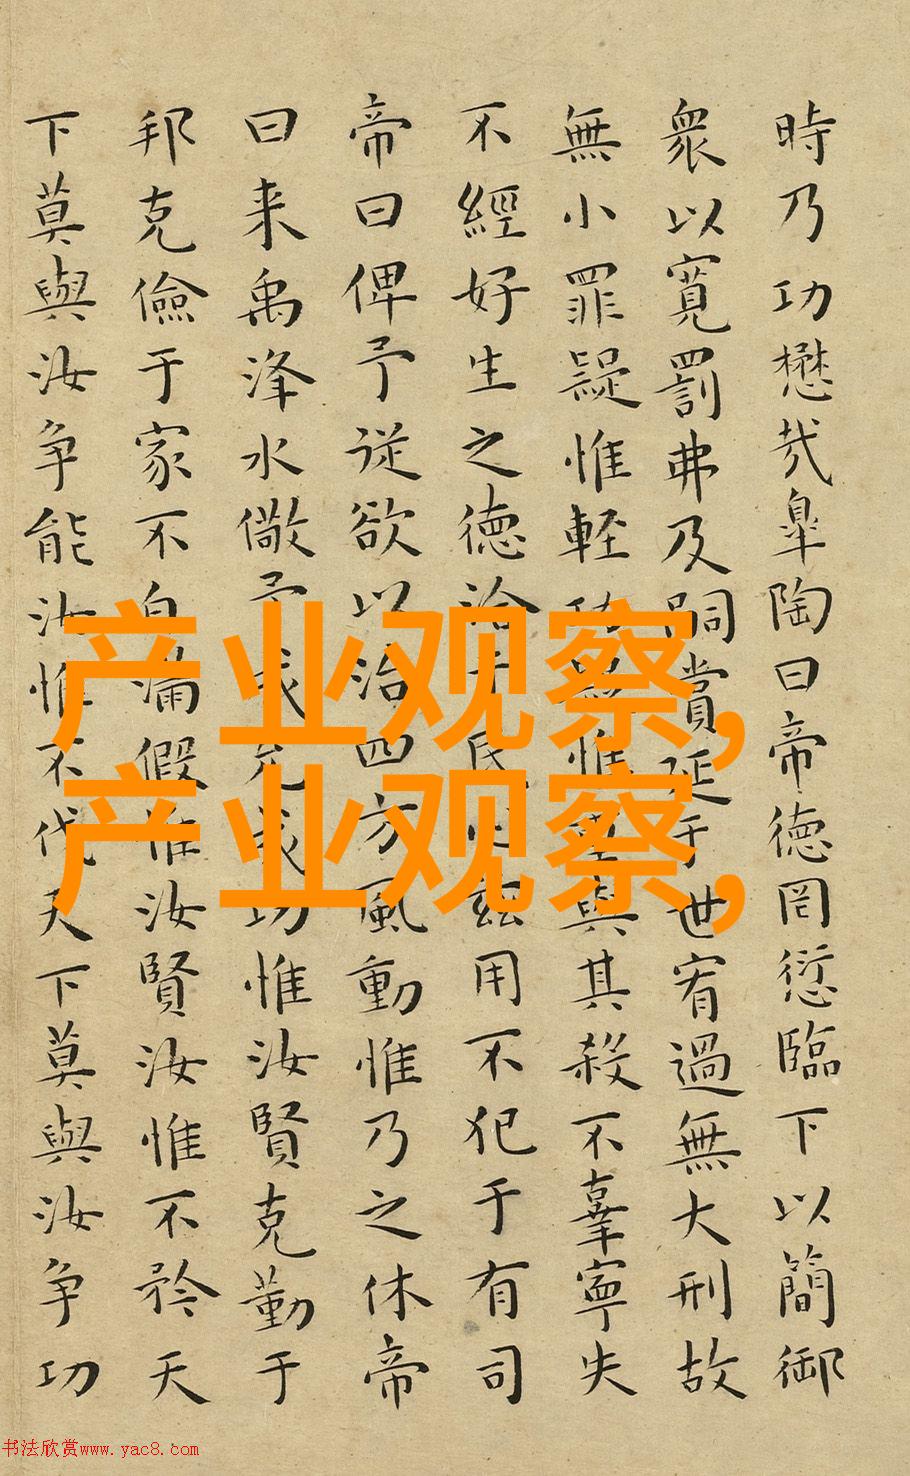 時乃功懋哉皐陶曰帝徳罔愆臨下以簡御
衆以寛罰弗及嗣賞延于世宥過無大刑故
無小罪疑惟軽惟與其殺不辜寧失
不經好生之徳洽于民兹用不犯于有司
帝曰俾予従欲以治四方風動惟乃之休帝
曰来禹洚水儆予成允成功惟汝賢克勤于
邦克儉于家不自滿假惟汝賢汝惟不矜天
下莫與汝争能汝惟不伐天下莫與汝争功
产业观察,
产业观察,
书法欣赏www.yac8.com